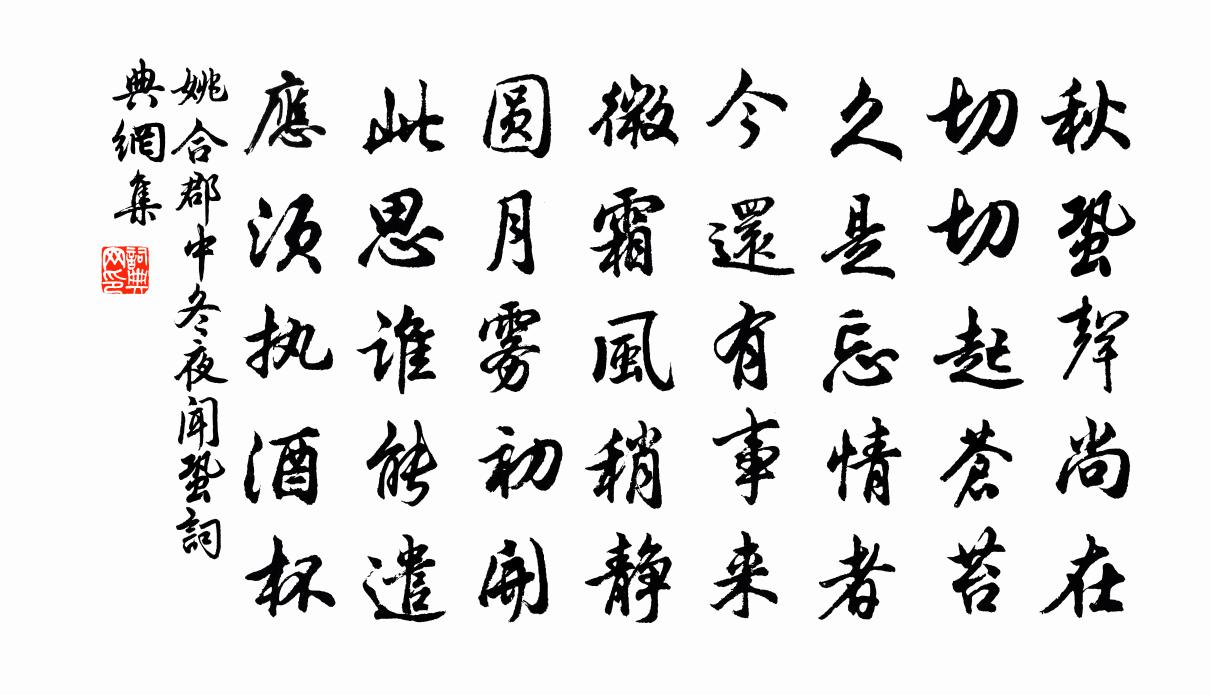 秋蛩聲尚在
切切起蒼苔
久是忘情者
今還有事来
微霜風稍静
圆月雾初開
此思誰能遣
應须执酒杯
姚合郡中冬夜聞蛩詞
典網集
詞典
网印